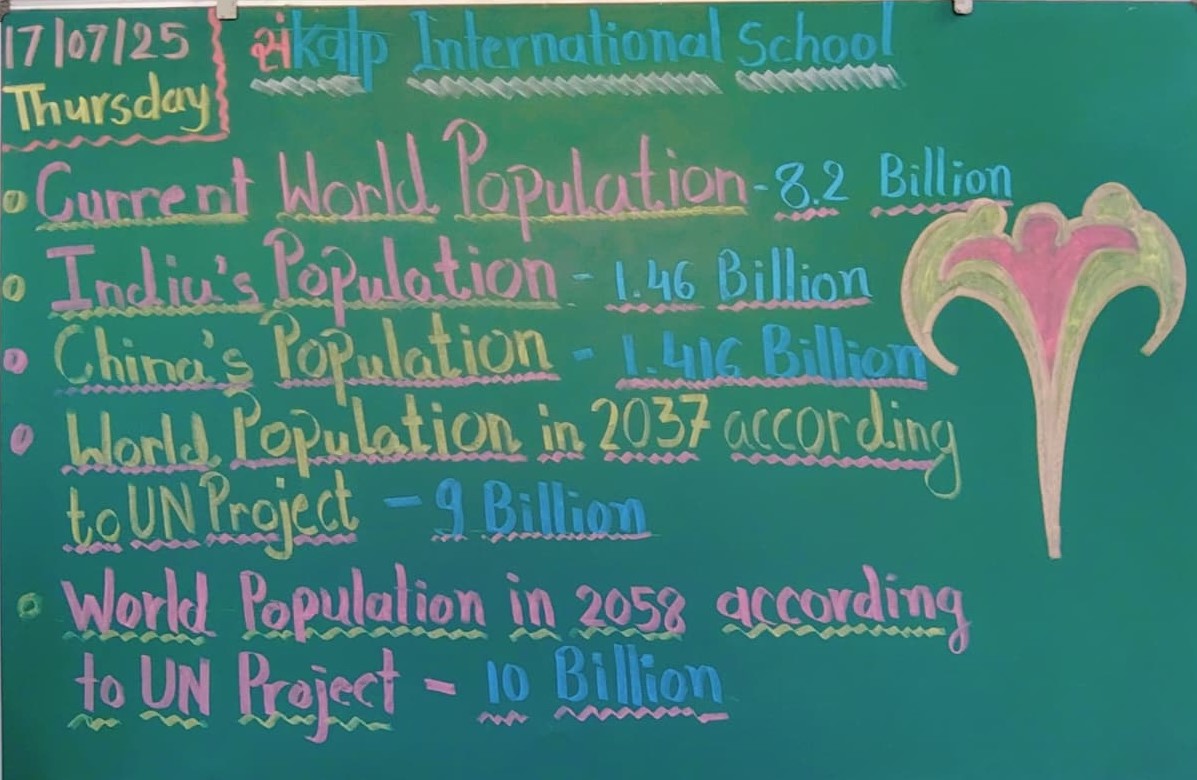 17/07/25
Thursday
संkalp International School
Current World Population - 8.2 Billion
India's Population - 1.46 Billion
China's Population - 1.416 Billion
World Population in 2037 according
to UN Project - 9 Billion
World Population in 2058 according
to UN Project - 10 Billion